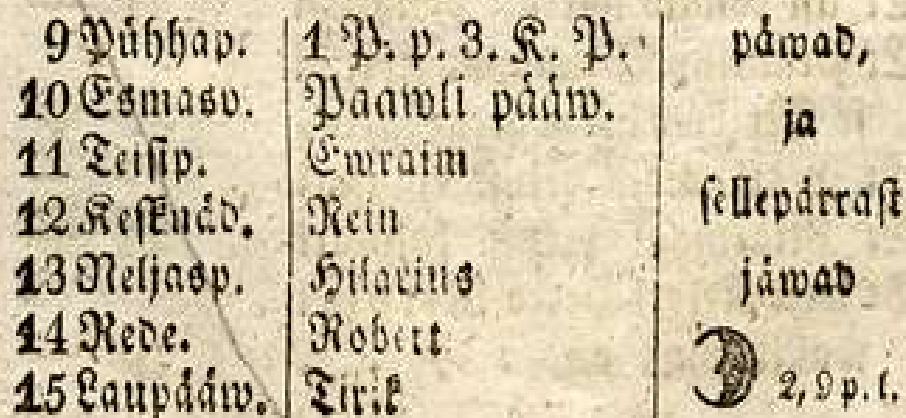 9 Pühhap. 1 P. p. 3. K. P. päwad,
10 Esmasp. Paawli pääw.
ja
11 Teisip. Ewraim
12 Kesknäd. Rein
sellepärrast
13 Neljasp. Hilarius jäwad
14 Rede. Robert
15 Laupääw. Tirik 2, 9 p. l.